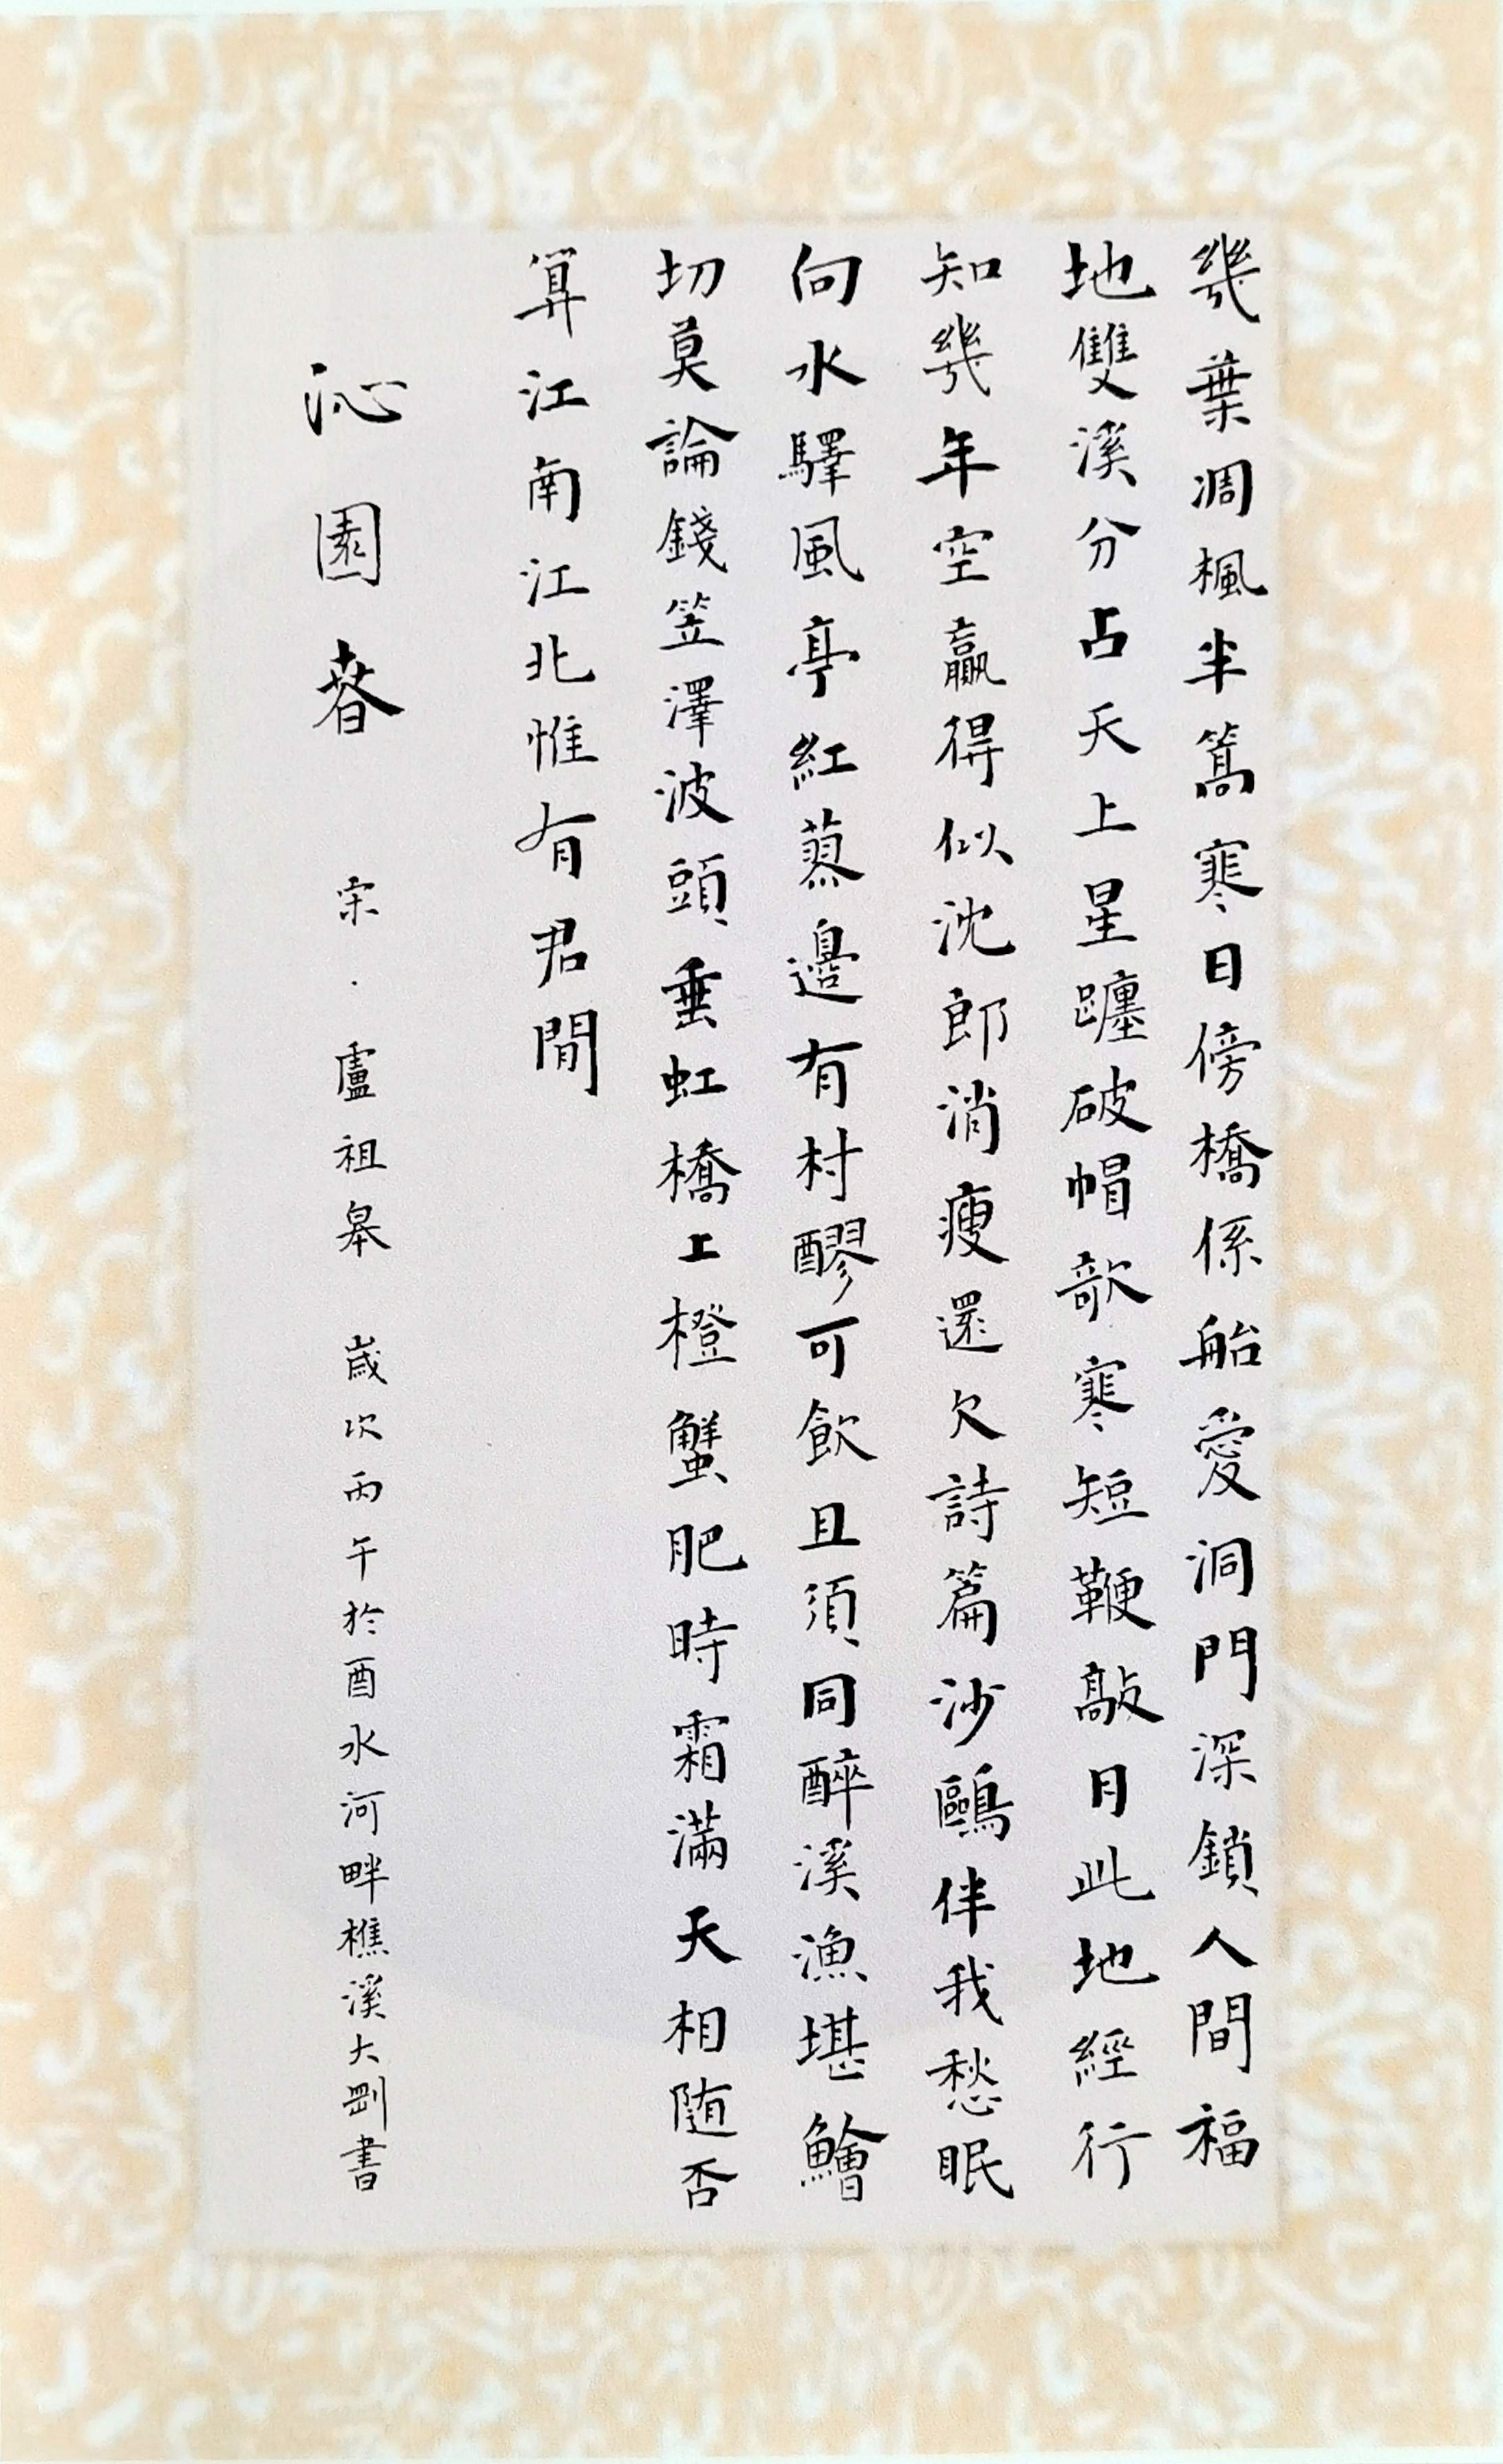 幾葉凋楓半篙寒日傍橋係船愛洞門深鎖人間福
地雙溪分占天上星躔破帽欹寒短鞭敲月此地經行
知幾年空贏得似沈郎消瘦還欠詩篇沙鷗伴我愁眠
向水驛風亭紅蓼邊有村醪可飲且須同醉溪漁堪鱠
切莫論錢笠澤波頭垂虹橋上橙蟹肥時霜滿天相随否
算江南江北惟有君閒
沁園春 宋·盧祖皋 歲次丙午於酉水河畔樵溪大剛書